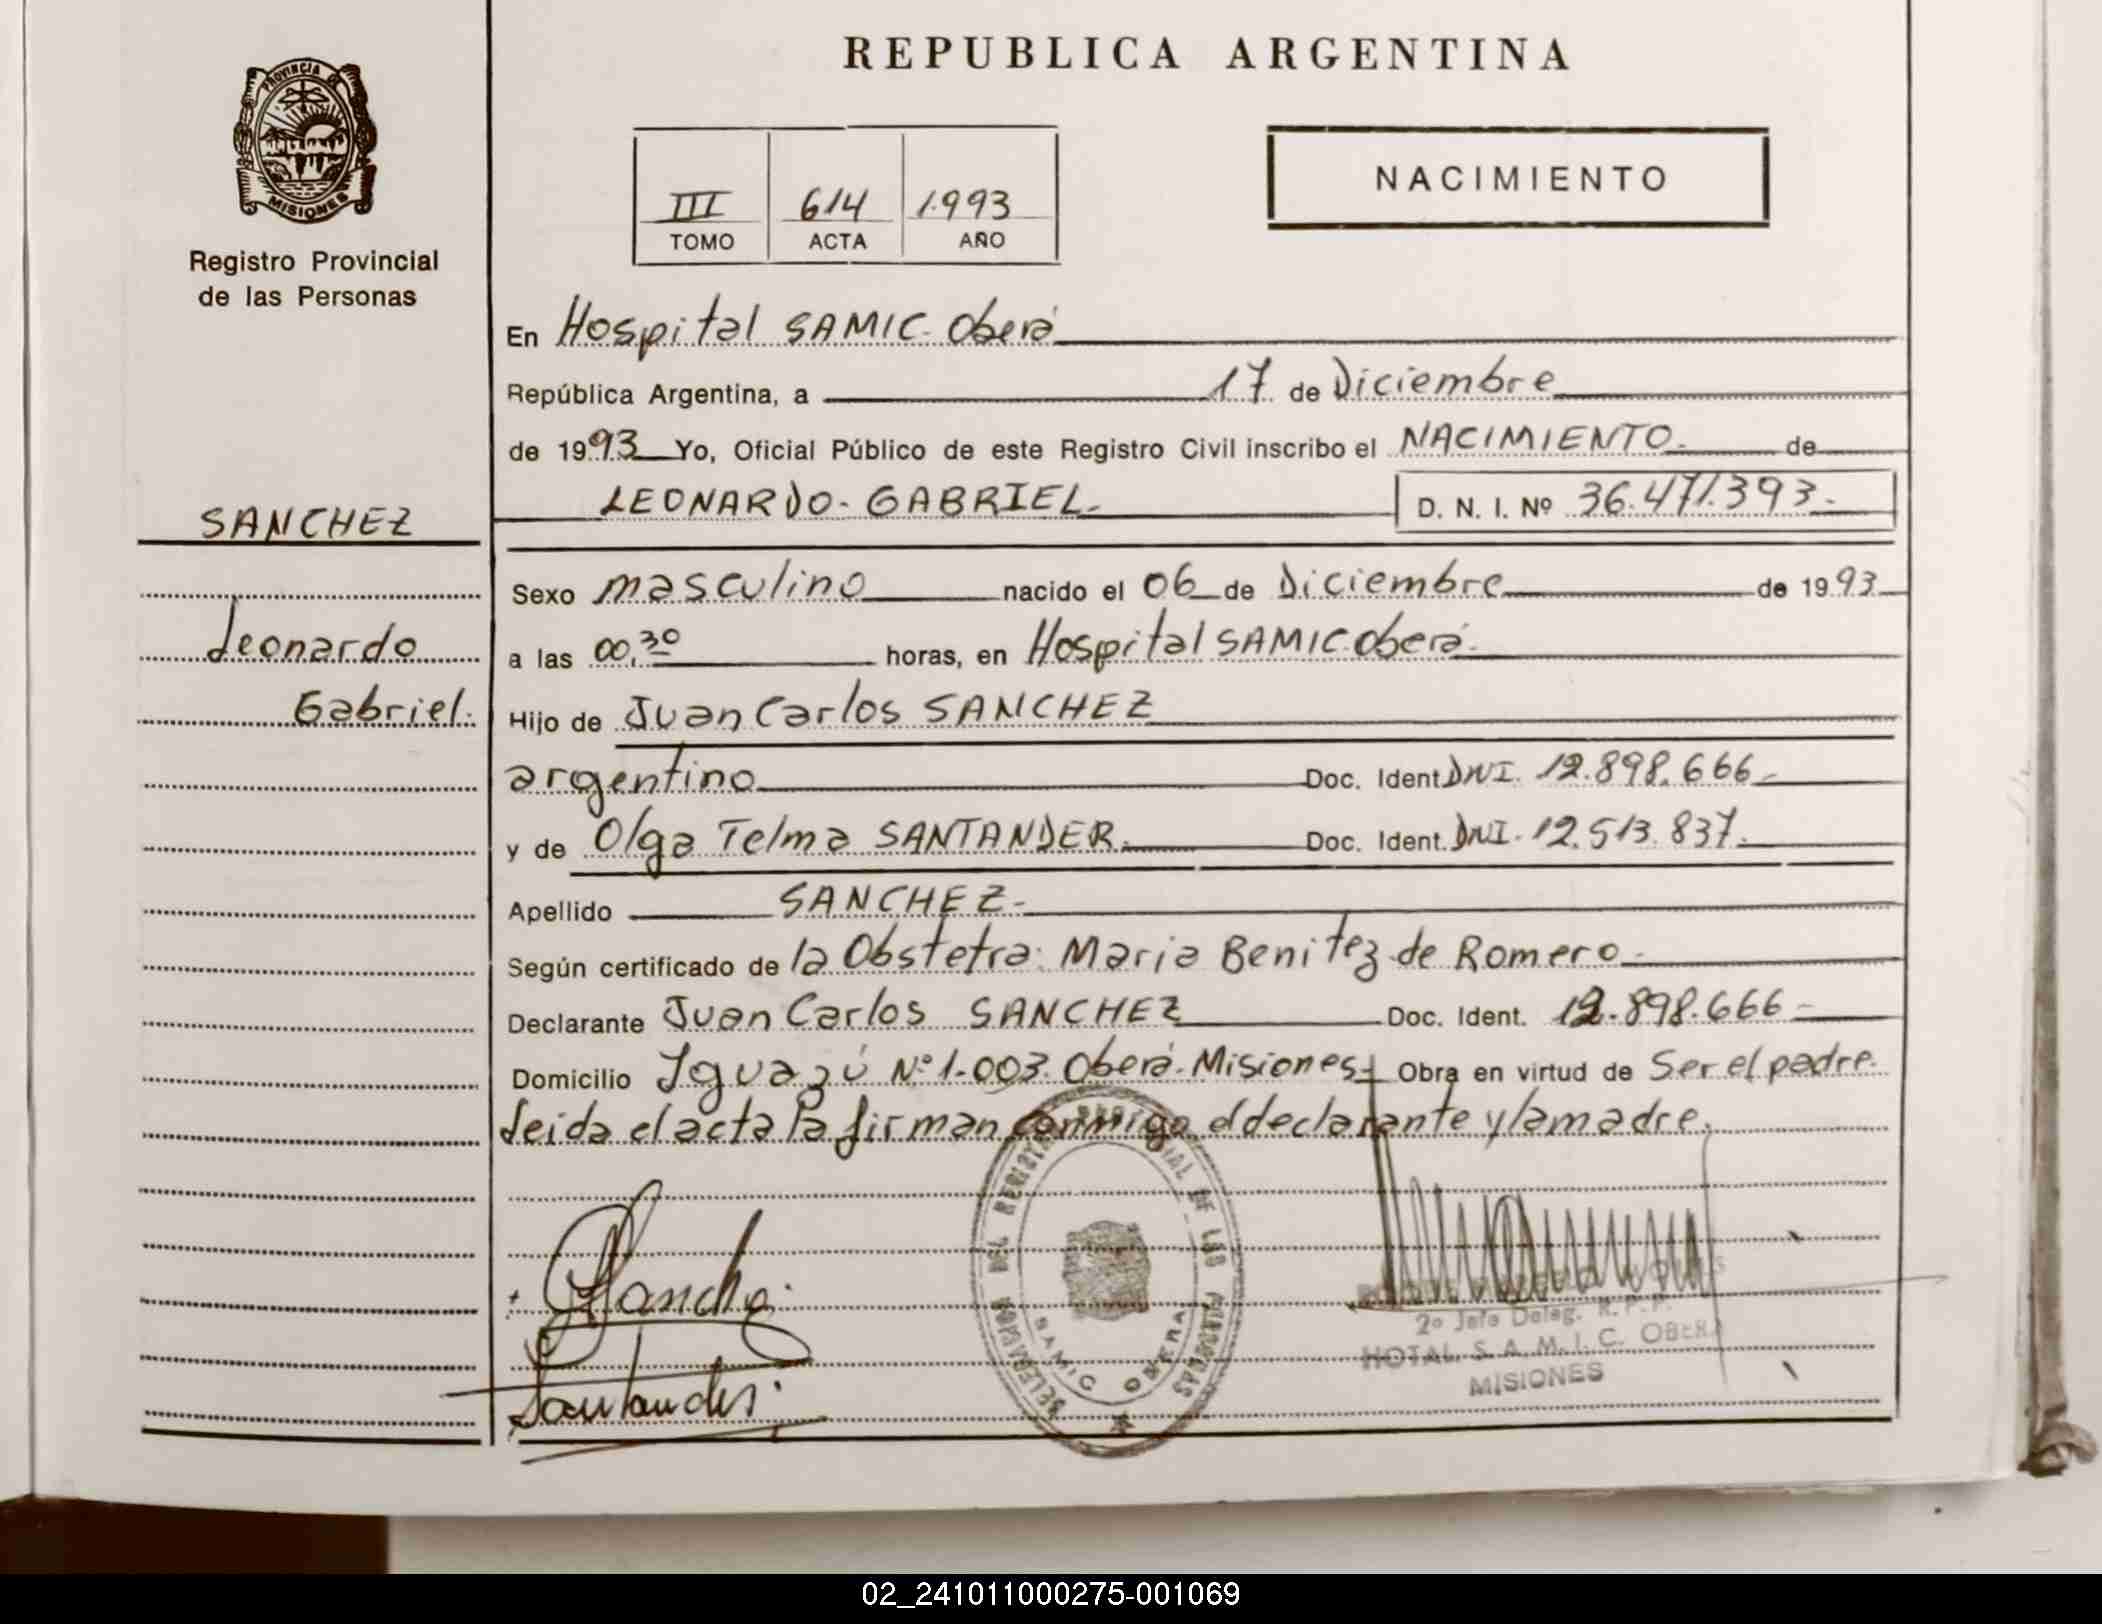 REPUBLICA ARGENTINA
PROVINCIA DE
MISIONES
Registro Provincial
de las Personas
III 614 1.993
TOMO ACTA AÑO
NACIMIENTO
En Hospital SAMIC. Oberá
República Argentina, a 17 de Diciembre
de 1993 Yo, Oficial Público de este Registro Civil inscribo el NACIMIENTO. de
LEONARDO - GABRIEL. D. N. I. Nº 36.471.393.-
SANCHEZ
Leonardo
Gabriel.
Sexo masculino nacido el 06 de Diciembre de 1993
a las 00,30 horas, en Hospital SAMIC Oberá.
Hijo de Juan Carlos SANCHEZ
argentino Doc. Ident. DNI. 12.898.666.-
y de Olga Telma SANTANDER. Doc. Ident. DNI. 12.513.837.-
Apellido SANCHEZ.-
Según certificado de la Obstetra: Maria Benitez de Romero.-
Declarante Juan Carlos SANCHEZ Doc. Ident. 12.898.666-
Domicilio Iguazú Nº 1.003. Oberá. Misiones.- Obra en virtud de Ser el padre.
Leida el acta la firman conmigo el declarante y la madre.
Santander.
DELEGACION DEL REGISTRO PROVINCIAL DE LAS PERSONAS
SAMIC OBERA
2º Jefe Deleg. R.P.P.
HOTAL S. A. M. I. C. OBERA
MISIONES
02_241011000275-001069